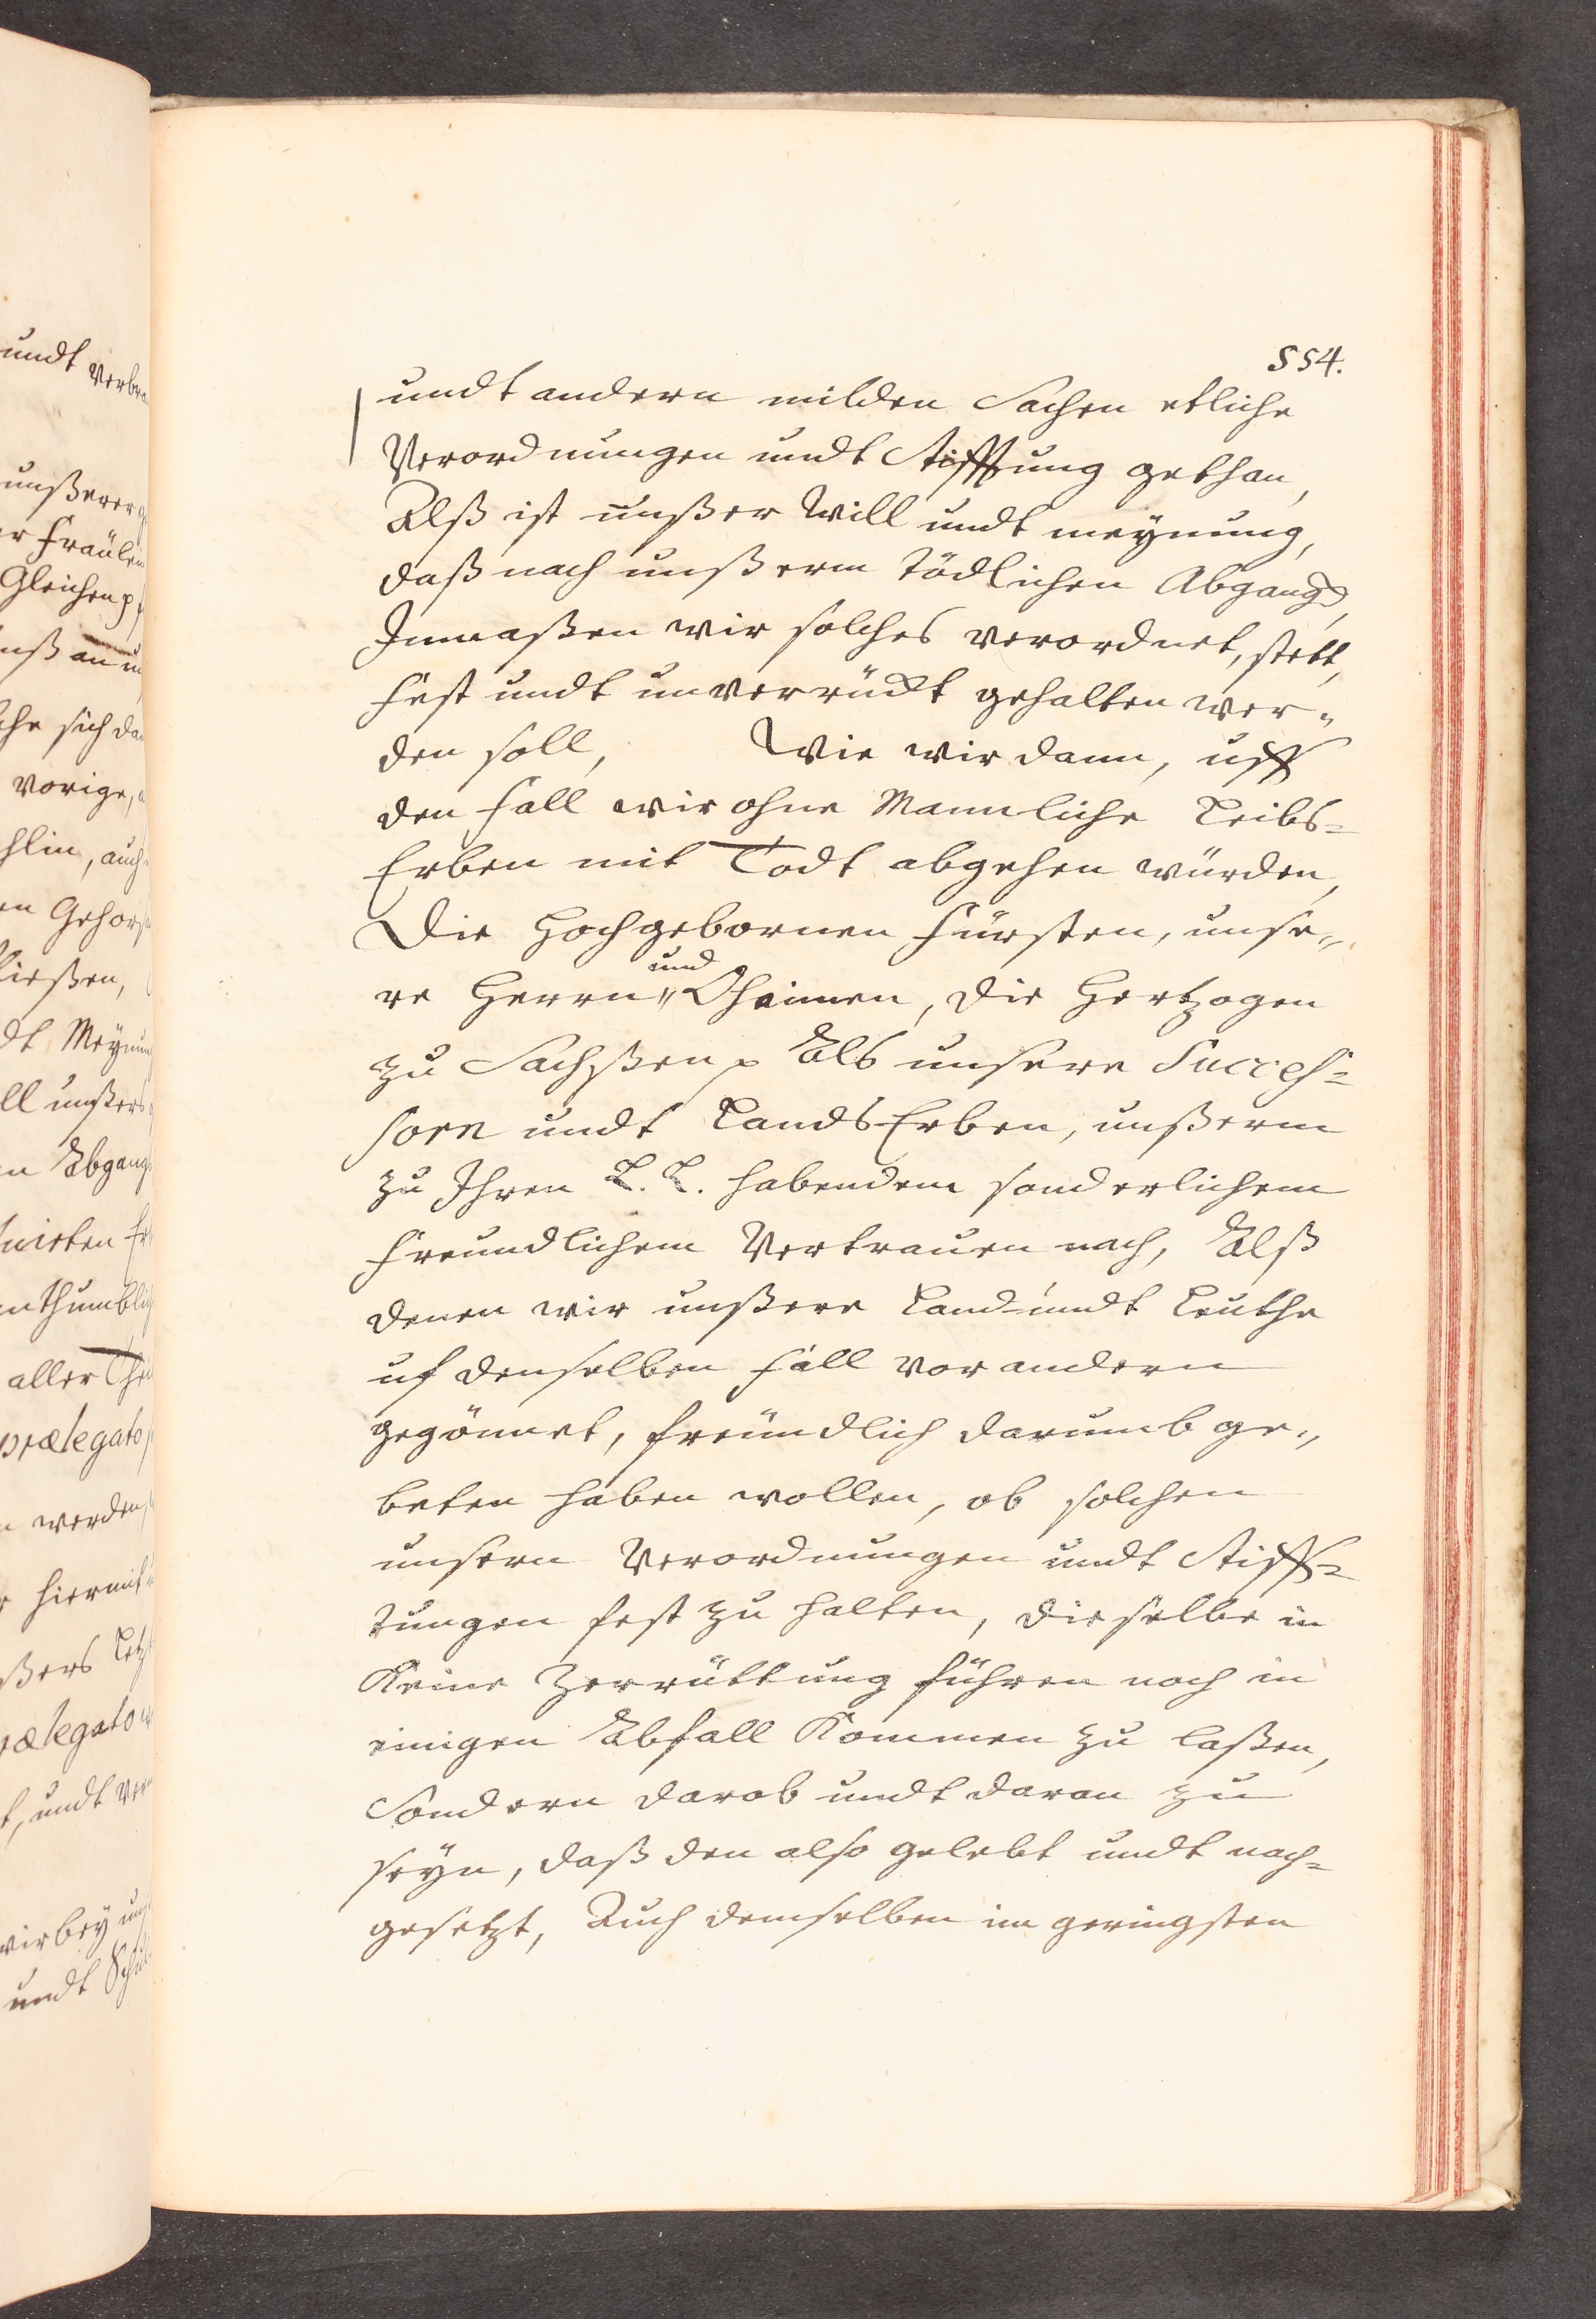 554.
undt andern milden Sachen etliche
Verordnungen undt Stifftung gethan,
Alß ist unßer Will undt meynung,
daß nach unßerm tödlichen Abgang,
Inmaßen wir solches verordnet, stett,
fest undt unverrückt gehalten wer„
den soll, Wie wir dann, uff
den fall wir ohne Mannliche Leibs=
Erben mit Todt abgehen würden,
Die Hochgebornen Fürsten, unse„
und
re Herrn „ Oheimen, die Hertzogen
zu Sachßen p Als unsere Succeß=
sorn undt Lands Erben, unßerm
zu Ihren L. L. habendem sonderlichem
freundlichem Vertrauen nach, Alß
denen wir unßere Land undt Leuthe
uf denselben fall vor andern
gegönnet, freündlich darumb ge„
beten haben wollen, ob solchen
unsern Verordnungen undt Stiff=
tungen fest zu halten, dieselbe in
Keine Zerrüttung führen noch in
einigen Abfall Kommen zu laßen,
Sondern darob undt daran zu
seyn, daß den also gelebt undt nach=
gesetzt, Auch demselben im geringsten
undt
unßerer
Fräulein
Gleichen p
sich
vorige,
auch
ießen,
Meynung
ll unßers
Abgang
aller
prælegato
werden
hiermit
ßers
prælegato
undt
wir bey
undt